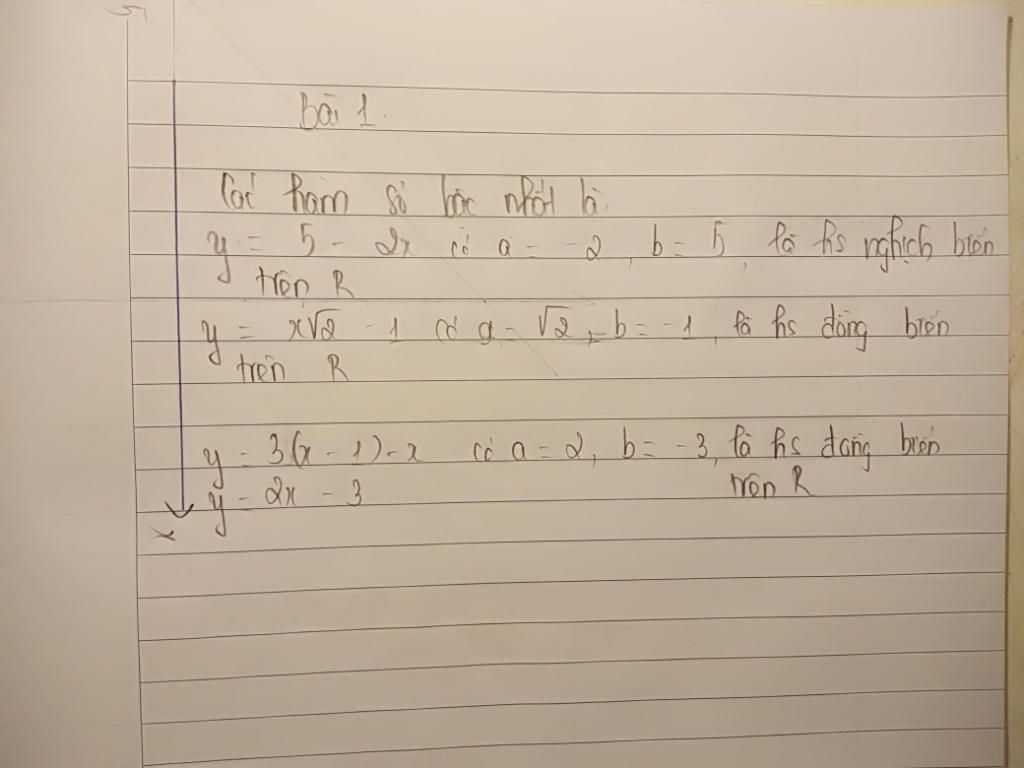 Bài 1.
Các hàm số bậc nhất là
y = 5 - 2x có a = -2, b = 5, là hs nghịch biến
trên R
y = x√2 - 1 có a = √2, b = -1, là hs đồng biến
trên R
y = 3(x - 1) - x có a = 2, b = -3, là hs đồng biến
y = 2x - 3 trên R
x